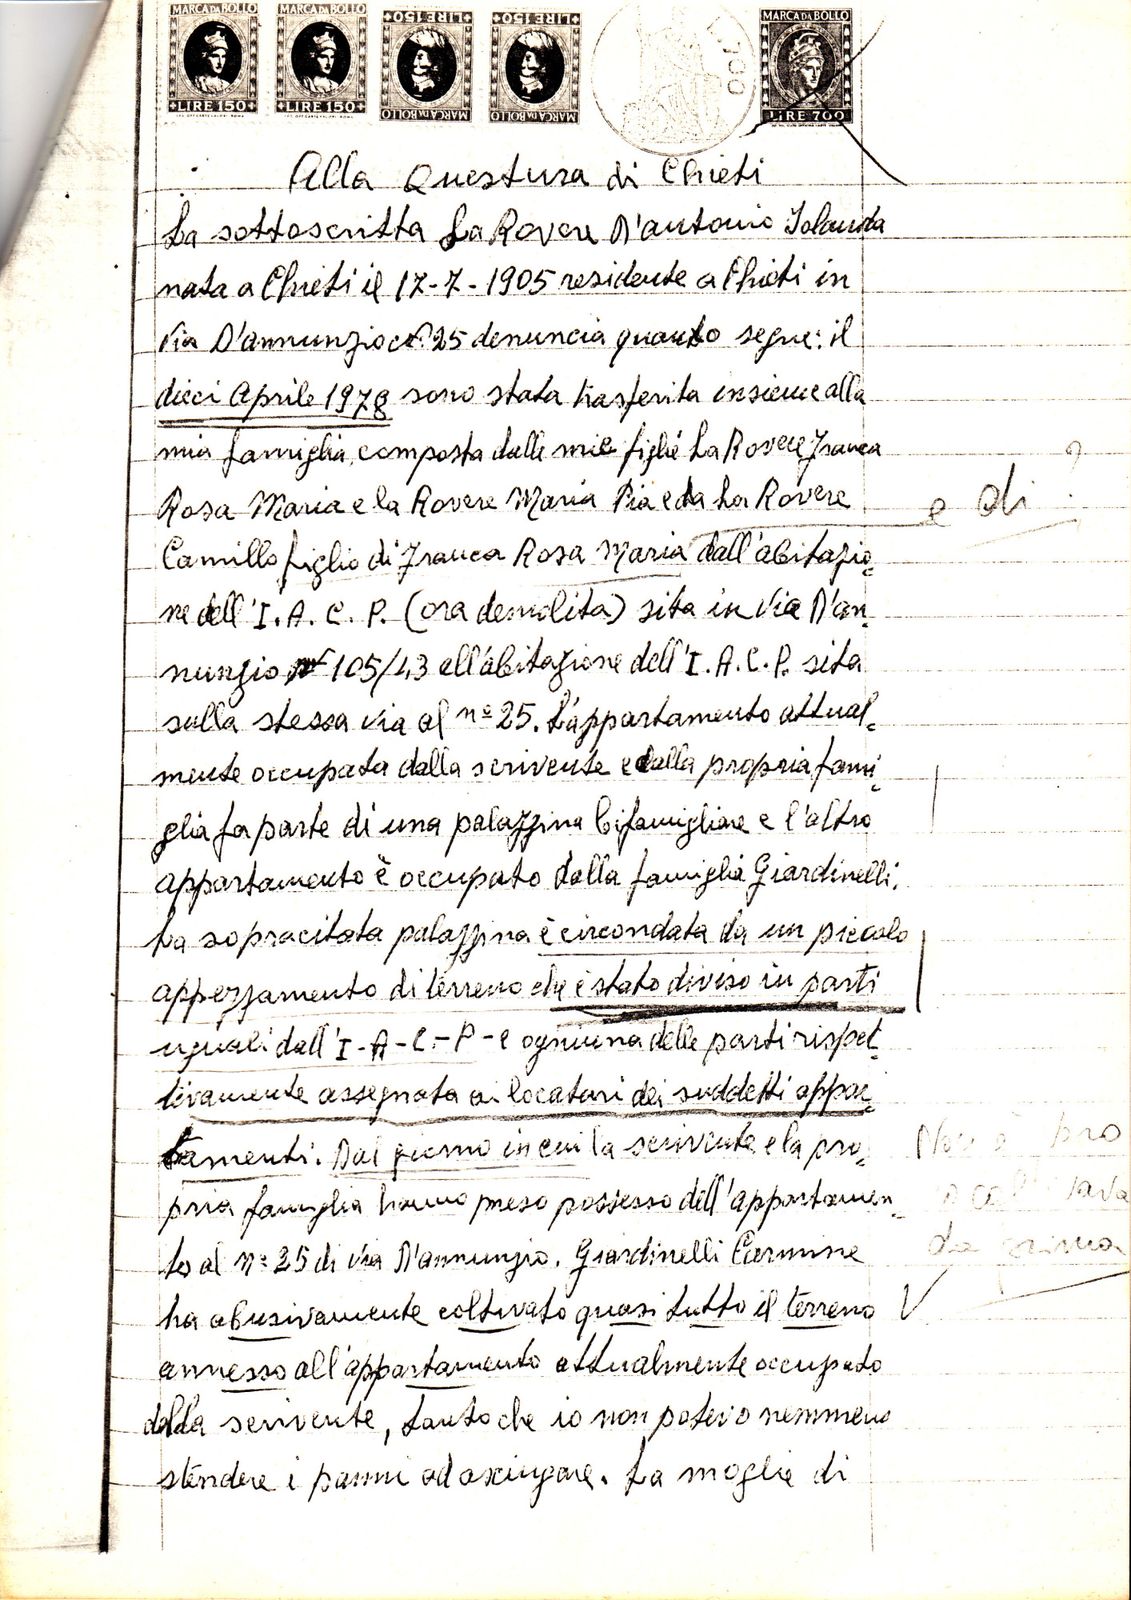 MARCA DA BOLLO MARCA DA BOLLO LIRE 150 LIRE 150 MARCA DA BOLLO
LIRE 150 LIRE 150 MARCA DA BOLLO MARCA DA BOLLO L.700 LIRE 700
Alla Questura di Chieti
La sottoscritta La Rovere D'antonio Iolanda
nata a Chieti il 17-7-1905 residente a Chieti in
via D'annunzio n° 25 denuncia quanto segue: il
dieci Aprile 1978 sono stata trasferita insieme alla
mia famiglia, composta dalle mie figlie La Rovere Franca
Rosa Maria e la Rovere Maria Pia e da La Rovere
e di ?
Camillo figlio di Franca Rosa Maria dall'abitazio-
ne dell'I.A.C.P. (ora demolita) sita in via D'an-
nunzio n° 105/43 all'abitazione dell'I.A.C.P. sita
sulla stessa via al n° 25. L'appartamento attual-
mente occupata dalla scrivente e dalla propria fami-
glia fa parte di una palazzina bifamigliare e l'altro
appartamento è occupato dalla famiglia Giardinelli.
La sopracitata palazzina è circondata da un piccolo
appezzamento di terreno che è stato diviso in parti
uguali dall'I-A-C-P- e ognuna delle parti rispet-
tivamente assegnata ai locatari dei suddetti appar-
tamenti. Dal giorno in cui la scrivente e la pro-
pria famiglia hanno preso possesso dell'appartamen-
to al n° 25 di via D'annunzio. Giardinelli Carmine
ha abusivamente coltivato quasi tutto il terreno
annesso all'appartamento attualmente occupato
dalla scrivente, tanto che io non potevo nemmeno
stendere i panni ad asciugare. La moglie di
Non è
da prima